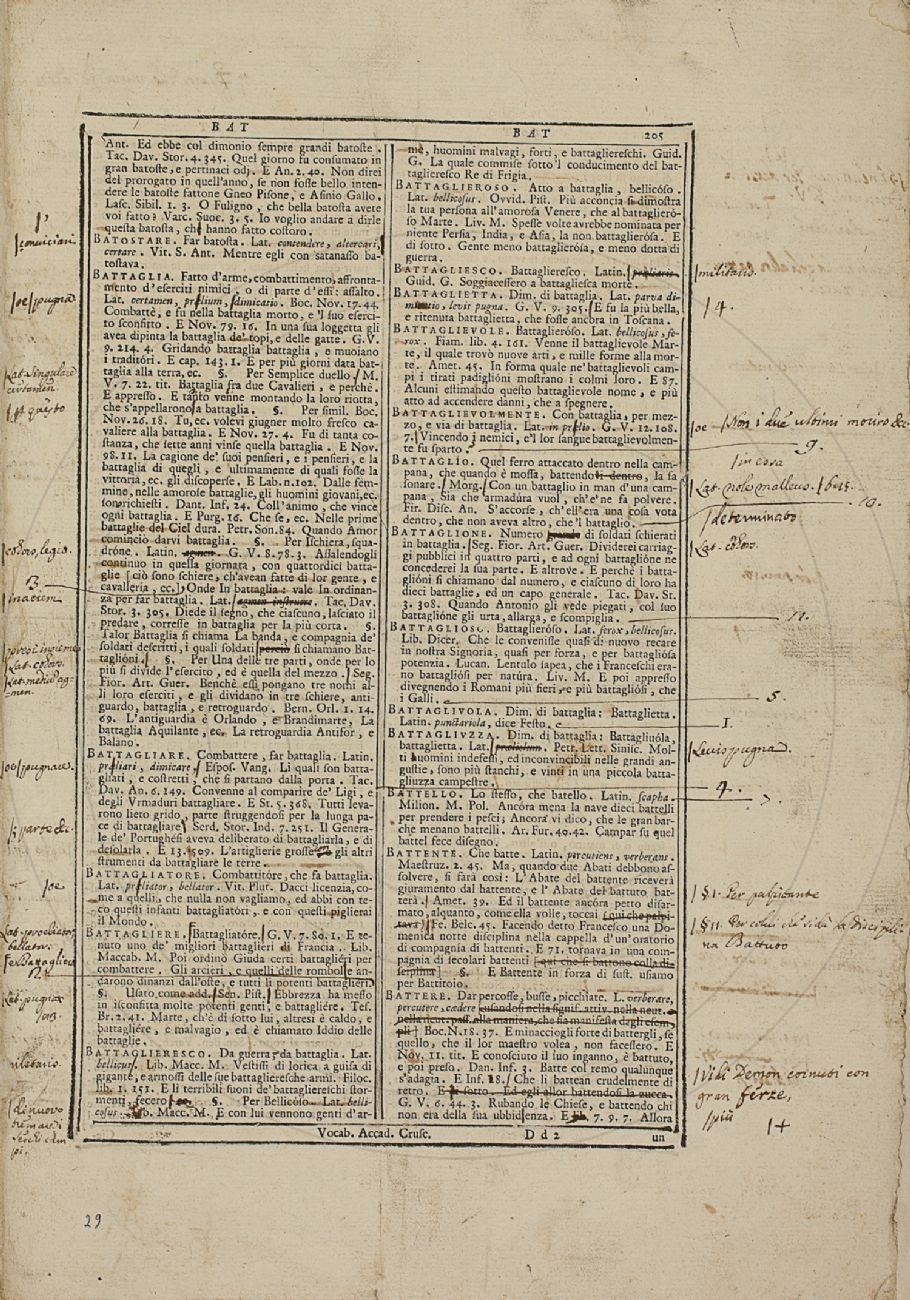 BAT
BAT 205
Ant. Ed ebbe col dimonio sempre grandi batoste.
Tac. Dav. Stor. 4. 345. Quel giorno fu consumato in
gran batoste, e pertinaci odj. E An. 2. 40. Non direi
del prorogato in quell'anno, se non fosse bello inten-
dere le batoste fattone Gneo Pisone, e Asinio Gallo.
Lasc. Sibil. 1. 3. O Fuligno, che bella batosta avete
voi fatto? Varc. Suoc. 3. 5. Io voglio andare a dirle
questa batosta, che hanno fatto costoro.
BATOSTARE. Far batosta. Lat. contendere, altercari,
certare. Vit. S. Ant. Mentre egli con satanasso ba-
tostava.
BATTAGLIA. Fatto d'arme, combattimento, affronta-
mento d'eserciti nimici, o di parte d'essi: assalto.
Lat. certamen, prelium, dimicatio. Boc. Nov. 17. 44.
Combattè, e fu nella battaglia morto, e 'l suo eserci-
to sconfitto. E Nov. 79. 16. In una sua loggetta gli
avea dipinta la battaglia de' topi, e delle gatte. G. V.
9. 214. 4. Gridando battaglia battaglia, e muoiano
i traditóri. E cap. 143. 1. E per più giorni data bat-
taglia alla terra, ec. §. Per Semplice duello. M.
V. 7. 22. tit. Battaglia fra due Cavalieri, e perchè.
E appresso. E tanto venne montando la loro riotta,
che s'appellarono a battaglia. §. Per simil. Boc.
Nov. 26. 18. Tu, ec. volevi giugner molto fresco ca-
valiere alla battaglia. E Nov. 27. 4. Fu di tanta co-
stanza, che sette anni vinse quella battaglia. E Nov.
98. 11. La cagione de' suoi pensieri, e i pensieri, e la
battaglia di quegli, e ultimamente di quali fosse la
vittoria, ec. gli discoperse. E Lab. n. 102. Dalle fem-
mine, nelle amorose battaglie, gli huomini giovani, ec.
sono richiesti. Dant. Inf. 24. Coll'animo, che vince
ogni battaglia. E Purg. 16. Che se, ec. Nelle prime
battaglie del Ciel dura. Petr. Son. 84. Quando Amor
cominciò darvi battaglia. §. Per Ischiera, squa-
dróne. Latin. agmen. G. V. 8. 78. 3. Assalendogli
continuo in questa giornata, con quattordici batta-
glie [ciò sono schiere, ch'avean fatte di lor gente, e
cavalleria, ec.] Onde In battaglia: vale In ordinan-
za per far battaglia. Lat. agmen instructe. Tac. Dav.
Stor. 3. 305. Diede il segno, che ciascuno, lasciato il
predare, corresse in battaglia per la più corta. §.
Talor Battaglia si chiama La banda, e compagnia de'
soldati descritti, i quali soldati perciò si chiamano Bat-
taglióni. §. Per Una delle tre parti, onde per lo
più si divide l'esercito, ed è quella del mezzo. Seg.
Fior. Art. Guer. Benchè essi pongano tre nomi al-
li loro eserciti, e gli dividano in tre schiere, anti-
guardo, battaglia, e retroguardo. Bern. Orl. 1. 14.
69. L'antiguardia è Orlando, e Brandimarte, La
battaglia Aquilante, ec. La retroguardia Antifor, e
Balano.
BATTAGLIARE. Combattere, far battaglia. Latin.
preliari, dimicare. Espos. Vang. Li quali son batta-
gliati, e costretti, che si partano dalla porta. Tac.
Dav. An. 6. 149. Convenne al comparire de' Ligi, e
degli Vrmaduri battagliare. E St. 5. 368. Tutti leva-
rono liero grido, parte struggendosi per la lunga pa-
ce di battagliare. Serd. Stor. Ind. 7. 251. Il Genera-
le de' Portughési aveva deliberato di battagliarla, e di
desolarla. E 13. 509. L'artiglierie grosse gli altri
strumenti da battagliare le terre.
BATTAGLIATORE. Combattitóre, che fa battaglia.
Lat. preliator, bellator. Vit. Plut. Dacci licenzia, co-
me a quelli, che nulla non vagliamo, ed abbi con te-
co questi infanti battagliatóri, e con questi piglierai
il Mondo.
BATTAGLIERE. Battagliatóre. G. V. 7. 86. 1. E te-
nuto uno de' migliori battaglieri di Francia. Lib.
Maccab. M. Poi ordinò Giuda certi battagliéri per
combattere. Gli arcieri, e quelli delle rombole an-
darono dinanzi dall'oste, e tutti li potenti battaglieri.
§. Usato come add. Sen. Pist. Ebbrezza ha messo
in isconfitta molte potenti genti, e battagliére. Tes.
Br. 2. 41. Marte, ch'è di sotto lui, altresì è caldo, e
battagliére, e malvagio, ed è chiamato Iddio delle
battaglie.
BATTAGLIERESCO. Da guerra, da battaglia. Lat.
bellicus. Lib. Macc. M. Vestissi di lorica a guisa di
gigante, e armossi delle sue battaglieresche armi. Filoc.
lib. 1. 151. E li terribili fuoni de' battagliereschi stor-
menti, fecero. §. Per Bellicóso. Lat. belli-
cosus. Lib. Macc. M. E con lui vennono genti d'ar-
me, huomini malvagi, forti, e battagliereschi. Guid.
G. La quale commise sotto 'l conducimento del bat-
taglieresco Re di Frigia.
BATTAGLIEROSO. Atto a battaglia, bellicóso.
Lat. bellicosus. Ovvid. Pist. Più acconcia si dimostra
la tua persona all'amorosa Venere, che al battaglieró-
so Marte. Liv. M. Spesse volte avrebbe nominata per
niente Persia, India, e Asia, la non battaglierósa. E
di sotto. Gente meno battaglierósa, e meno dotta di
guerra.
BATTAGLIESCO. Battaglieresco. Latin. preliaris.
Guid. G. Soggiacessero a battagliesca morte.
BATTAGLIETTA. Dim. di battaglia. Lat. parva di-
micatio, levis pugna. G. V. 9. 305. E fu la più bella,
e ritenuta battaglietta, che fosse ancora in Toscana.
BATTAGLIEVOLE. Battaglieróso. Lat. bellicosus, fe-
rox. Fiam. lib. 4. 161. Venne il battaglievole Mar-
te, il quale trovò nuove arti, e mille forme alla mor-
te. Amet. 45. In forma quale ne' battaglievoli cam-
pi i tirati padiglióni mostrano i colmi loro. E 87.
Alcuni estimando questo battaglievole nome, e più
atto ad accendere danni, che a spegnere.
BATTAGLIEVOLMENTE. Con battaglia, per mez-
zo, e via di battaglia. Lat. in prelio. G. V. 12. 108.
7. Vincendo i nemici, e'l lor sangue battaglievolmen-
te fu sparto.
BATTAGLIO. Quel ferro attaccato dentro nella cam-
pana, che quando è mossa, battendo dentro, la fa
sonare. Morg. Con un battaglio in man d'una cam-
pana, Sia che armadúra vuol, ch'e' ne fa polvere.
Fir. Disc. An. S'accorse, ch'ell'era una cosa vota
dentro, che non aveva altro, che'l battaglio.
BATTAGLIONE. Numero grande di soldati schierati
in battaglia. Seg. Fior. Art. Guer. Dividerei carriag-
gi pubblici in quattro parti, e ad ogni battaglióne ne
concederei la sua parte. E altrove. E perchè i batta-
glióni si chiamano dal numero, e ciascuno di loro ha
dieci battaglie, ed un capo generale. Tac. Dav. St.
3. 308. Quando Antonio gli vede piegati, col suo
battaglióne gli urta, allarga, e scompiglia.
BATTAGLIOSO. Battaglieróso. Lat. ferox, bellicosus.
Lib. Dicer. Che le convenisse quasi di nuovo recare
in nostra Signoria, quasi per forza, e per battagliósa
potenzia. Lucan. Lentulo sapea, che i Franceschi era-
no battagliósi per natúra. Liv. M. E poi appresso
divegnendo i Romani più fieri, e più battagliósi, che
i Galli.
BATTAGLIVOLA. Dim. di battaglia: Battaglietta.
Latin. punctariola, dice Festo.
BATTAGLIVZZA. Dim. di battaglia: Battagliuóla,
battaglietta. Lat. preliolum. Petr. Lett. Sinisc. Mol-
ti huomini indefessi, ed inconvincibili nelle grandi an-
gustie, sono più stanchi, e vinti in una piccola batta-
gliuzza campestre.
BATTELLO. Lo stesso, che batello. Latin. scapha.
Milion. M. Pol. Ancóra mena la nave dieci battelli
per prendere i pesci; Ancora' vi dico, che le gran bar-
che menano battelli. Ar. Fur. 40. 42. Campar su quel
battel fece disegno.
BATTENTE. Che batte. Latin. percutiens, verberans.
Maestruz. 2. 45. Ma, quando due Abati debbono as-
solvere, si farà così: L'Abate del battente riceverà
giuramento dal battente, e l'Abate del battuto bat-
terà. Amet. 39. Ed il battente ancóra petto disar-
mato, alquanto, come ella volle, toccai [qui che palpi-
tava] Fe. Belc. 45. Facendo detto Francesco una Do-
menica notte disciplina nella cappella d'un'oratorio
di compagnia di battenti. E 71. tornava in una com-
pagnia di secolari battenti [qui che si battono colla di-
sciplina] §. E Battente in forza di sust. usiamo
per Battitoio.
BATTERE. Dar percosse, busse, picchiate. L. verberare,
percutere, cædere usandosi nella signif. attiv. nella neut. e
nella neut. pass. alla maniera, che sia manifesta dagli esem-
pli] Boc. N. 18. 37. E minacciogli forte di battergli, se
quello, che il lor maestro volea, non facessero. E
Nov. 11. tit. E conosciuto il suo inganno, è battuto,
e poi preso. Dan. Inf. 3. Batte col remo qualunque
s'adagia. E Inf. 18. Che li battean crudelmente di
retro. E di sotto. Ed egli allor battendosi la zucca.
G. V. 6. 44. 3. Rubando le Chiese, e battendo chi
non era della sua ubbidienza. E lib. 7. 9. 7. Allora
Vocab. Accad. Crusc. D d 2 un
conviciari
pugna
Lat. singulare
certamen
questo
3
in aciem
Lat. cohors.
pugnare
Lat. proeliator
bellator.
militaris.
4.
Non i due ultimi
9.
Lat. nola malleus.
10.
determinato
Lat. cohors.
11.
5
1.
Levis pugna.
4.
7.
§ I. Per palpitante
§ II. Per colui che si dà la disciplina
Battuto
Vidi Demon cornuti con
gran ferze,
più
29